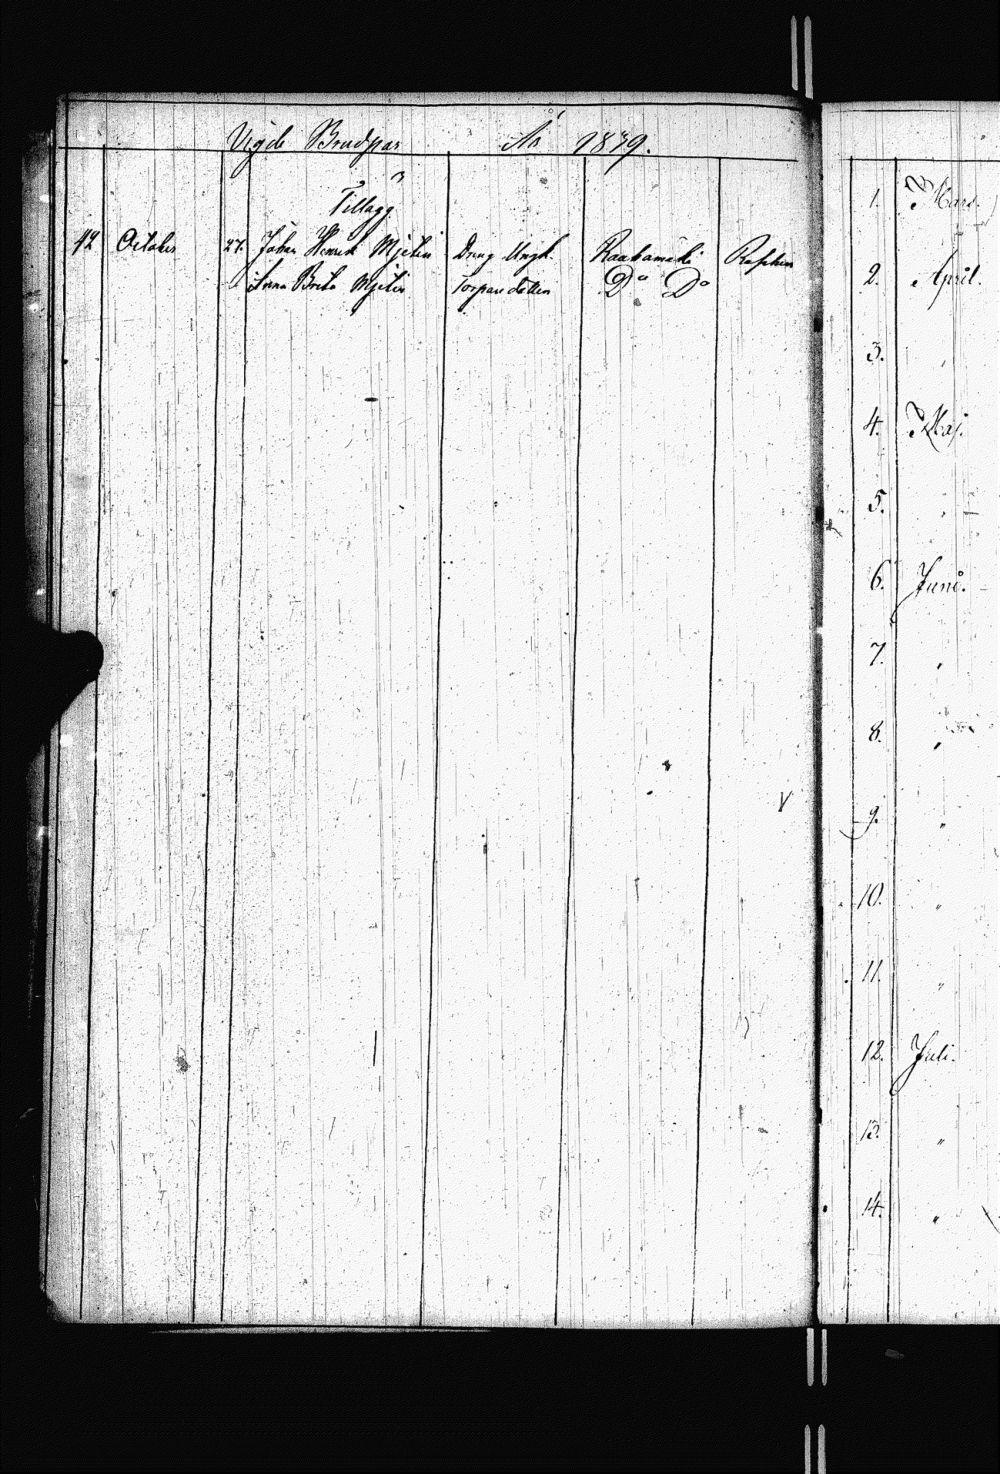 Vigde Brudpar År 1879.
Tillägg
12 October 27. Johan Henrik Mjelin Dräng Ungk. Raahamäki
Anna Brita Mjelin Torpare dotter Do Do
1. Mars.
2. April.
3.
4. Maj.
5. "
6. Juni.
7. "
8. "
9. "
10. "
11. "
12. Juli.
13. "
14. "